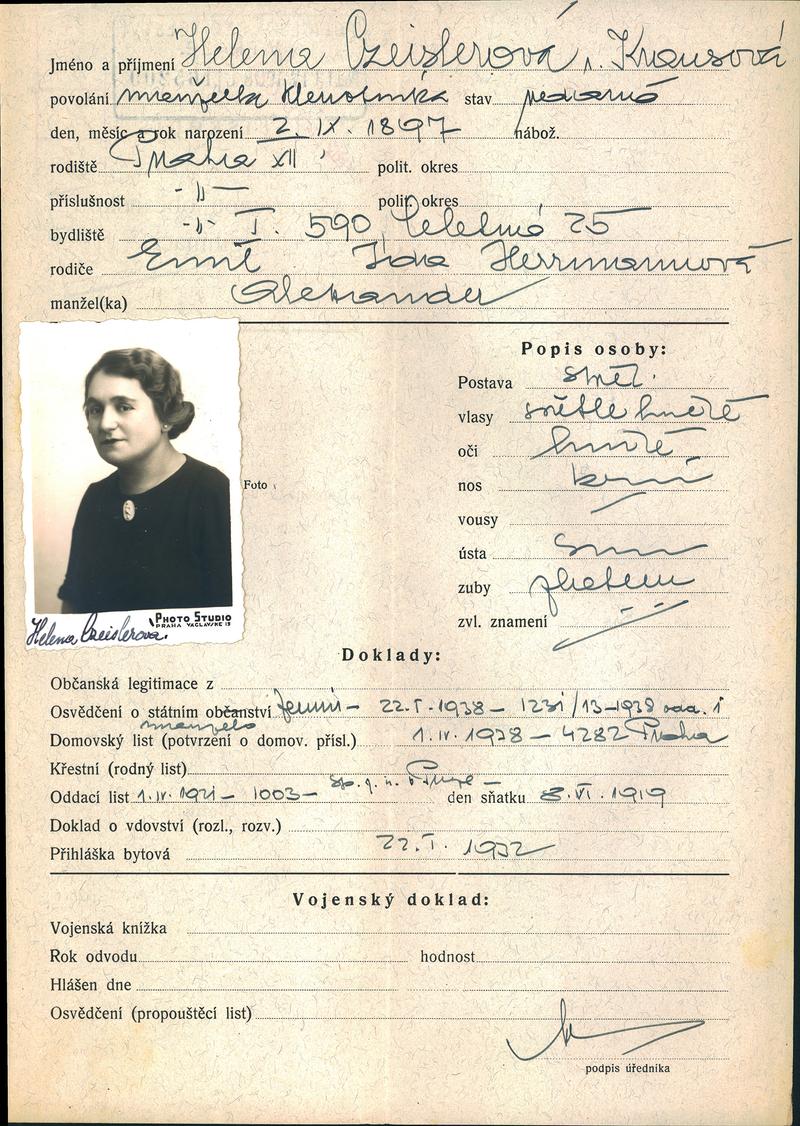 Jméno a příjmení Helena Czeislerová r. Krausová
povolání manželka klenotníka stav vdaná
den, měsíc a rok narození 2. IX. 1897 nábož.
rodiště Praha XII polit. okres
příslušnost -"- polit. okres
bydliště -"- I. 590, Celetná 25
rodiče Emil Ida Herrmannová
manžel(ka) Aleksander
Popis osoby:
Postava stř.
vlasy světle hnědé
oči hnědé
Foto
nos
vousy
ústa
zuby
zvl. znamení
Helena Czeislerova.
PHOTO STUDIO
PRAHA VÁCLAVSKÉ
Doklady:
Občanská legitimace z
Osvědčení o státním občanství 22.I.1938 - 1231/13-1938
manžela
Domovský list (potvrzení o domov. přísl.) 1. IV. 1928 - 4282 Praha
Křestní (rodný list)
Oddací list 1. IV. 1921 - 1003 - den sňatku 8. VI. 1919
Doklad o vdovství (rozl., rozv.)
Přihláška bytová 22. I. 1932
Vojenský doklad:
Vojenská knížka
Rok odvodu hodnost
Hlášen dne
Osvědčení (propouštěcí list)
podpis úředníka